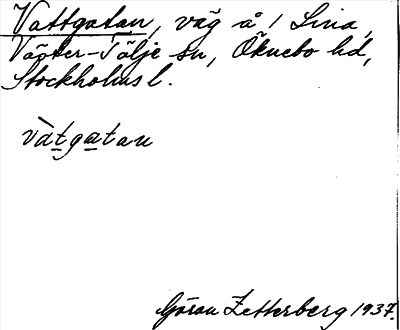 Vattgatan, väg å 1 Lina,
Väster-Tälje sn, Öknebo hd,
Stockholms l.
vàtgatan
Göran Zetterberg 1937.